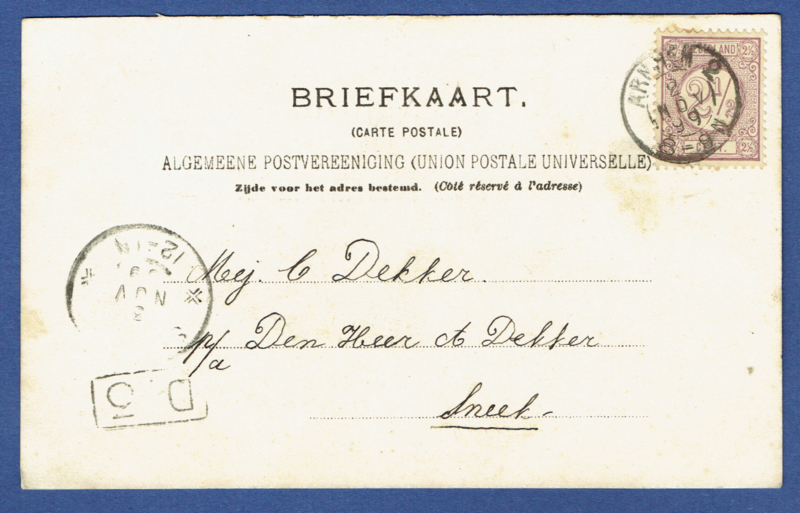 BRIEFKAART.
(CARTE POSTALE)
ALGEMEENE POSTVEREENIGING (UNION POSTALE UNIVERSELLE)
Zijde voor het adres bestemd. (Côté réservé à l'adresse)
NEDERLAND 2½
2½
ARNHEM 2
2
NOV
99
8-9N
Mej. C Dekker.
p/a Den Heer A Dekker
Sneek-
12-1N
NOV
D 3